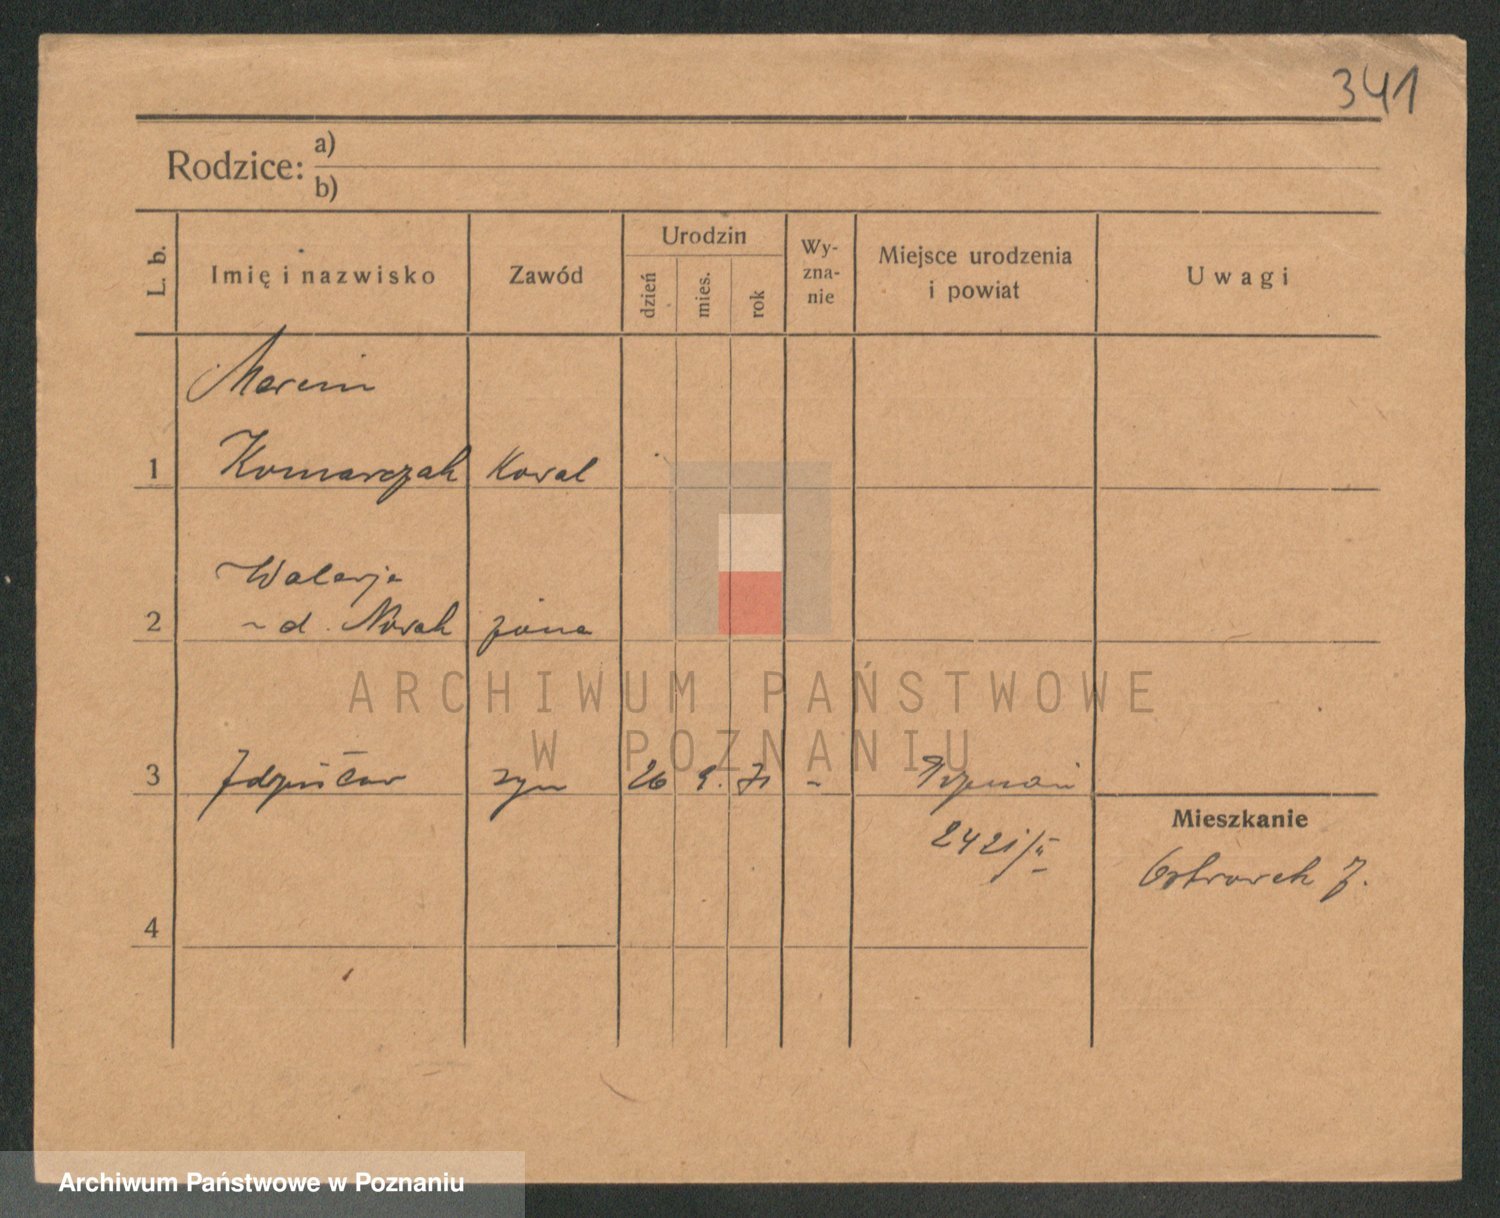 341
Rodzice: a)
b)
L. b. Imię i nazwisko Zawód Urodzin dzień mies. rok Wy-zna-nie Miejsce urodzenia i powiat Uwagi
Marcin
1 Komarczak Kowal
Walerja
2 ~ d. Nowak żona
3 Zdzisław syn 26 9. - Poznań
Mieszkanie
2421/II
Ostrówek 7.
4
ARCHIWUM PAŃSTWOWE
W POZNANIU
Archiwum Państwowe w Poznaniu